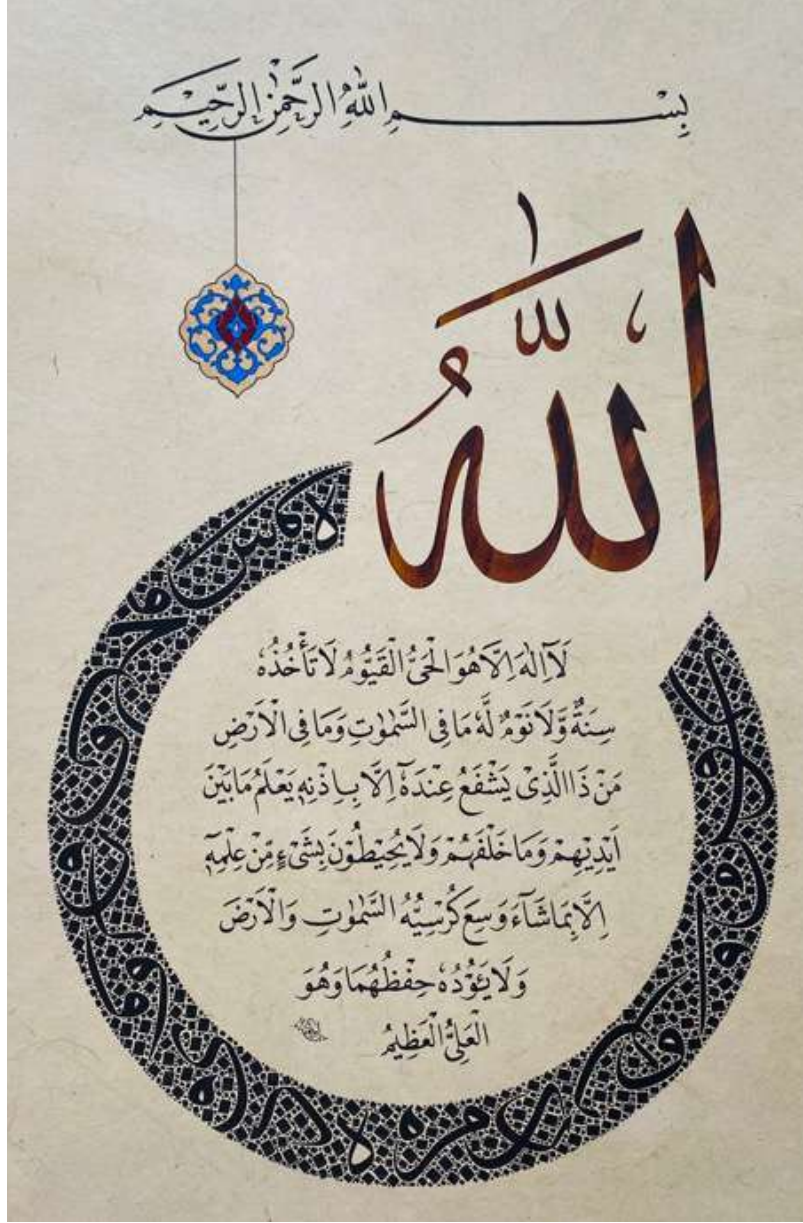 بِسْمِ اللّٰهِ الرَّحْمٰنِ الرَّحِيْمِ
اَللّٰهُ
لَآ اِلٰهَ اِلَّا هُوَ الْحَىُّ الْقَيُّوْمُ لَا تَأْخُذُهٗ
سِنَةٌ وَّلَا نَوْمٌ لَّهٗ مَا فِى السَّمٰوٰتِ وَمَا فِى الْاَرْضِ
مَنْ ذَا الَّذِىْ يَشْفَعُ عِنْدَهٗٓ اِلَّا بِاِذْنِهٖ يَعْلَمُ مَا بَيْنَ
اَيْدِيْهِمْ وَمَا خَلْفَهُمْ وَلَا يُحِيْطُوْنَ بِشَىْءٍ مِّنْ عِلْمِهٖٓ
اِلَّا بِمَا شَآءَ وَسِعَ كُرْسِيُّهُ السَّمٰوٰتِ وَالْاَرْضَ
وَلَا يَـُٔوْدُهٗ حِفْظُهُمَا وَهُوَ
الْعَلِىُّ الْعَظِيْمُ